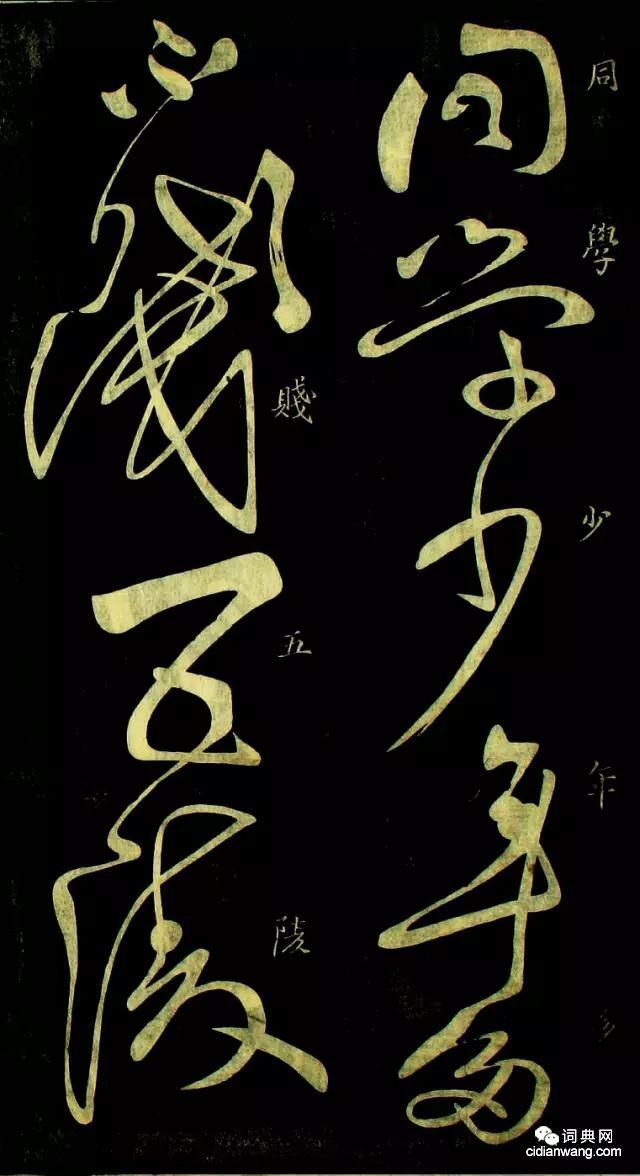 同學少年多
同學少年多
賤五陵
不賤五陵
词典网
cidianwang.com